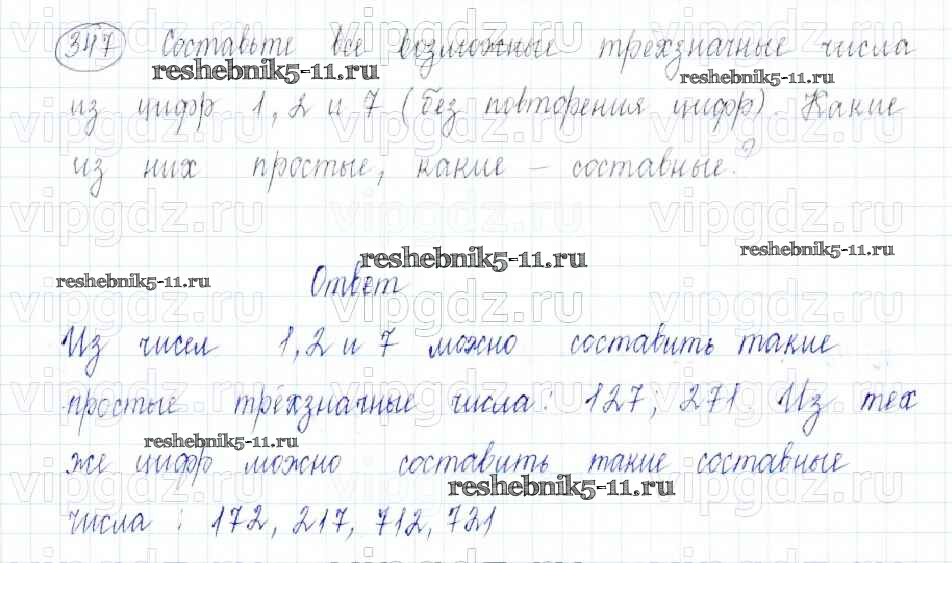 347 Составьте все возможные трёхзначные числа
reshebnik5-11.ru reshebnik5-11.ru
из цифр 1, 2 и 7 (без повторения цифр). Какие
из них простые, какие – составные?
vipgdz.ru vipgdz.ru vipgdz.ru
reshebnik5-11.ru reshebnik5-11.ru
reshebnik5-11.ru Ответ
vipgdz.ru vipgdz.ru vipgdz.ru
Из чисел 1, 2 и 7 можно составить такие
простые трёхзначные числа: 127; 271. Из тех
reshebnik5-11.ru
же цифр можно составить такие составные
reshebnik5-11.ru
числа: 172, 217, 712, 721